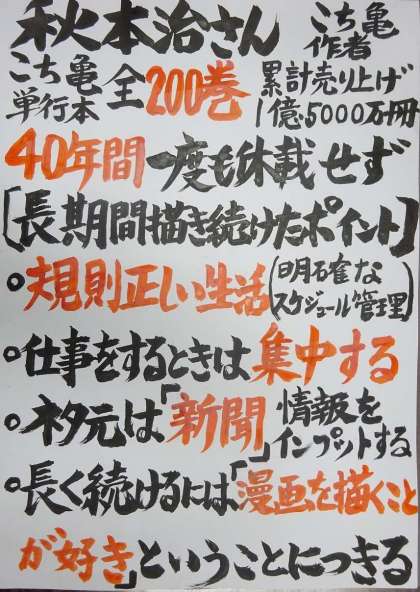 秋本治さん こち亀作者
こち亀単行本 全200巻 累計売り上げ1億5000万冊
40年間一度も休載せず
[長期間描き続けたポイント]
○規則正しい生活(明確なスケジュール管理)
○仕事をするときは集中する
○ネタ元は「新聞」情報をインプットする
○長く続けるには「漫画を描くこと
が好き」ということにつきる